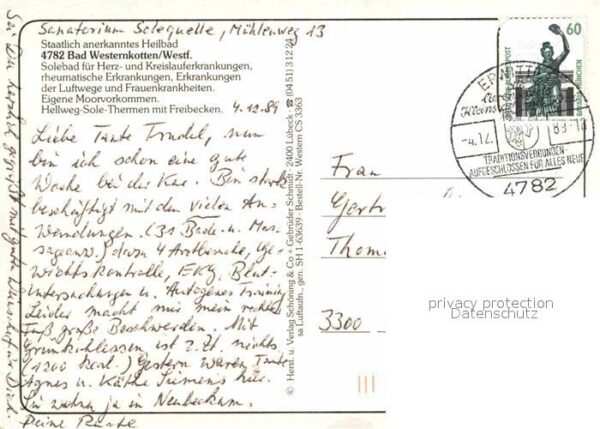 Sanatorium Solequelle, Mühlenweg 13
Staatlich anerkanntes Heilbad
4782 Bad Westernkotten/Westf.
Solebad für Herz- und Kreislauferkrankungen,
rheumatische Erkrankungen, Erkrankungen
der Luftwege und Frauenkrankheiten.
Eigene Moorvorkommen.
Hellweg-Sole-Thermen mit Freibecken.
4.12.89
Liebe Tante Trudel, nun
bin ich schon eine gute
Woche bei der Kur. Bin stark
beschäftigt mit den vielen An-
wendungen. (31 Bade- u. Mas-
sageanw.) dazu 4 Arztbesuche, Ge-
wichtskontrolle, EKG, Blut-
untersuchungen u. Autogenes Training
Leider macht mir mein rechter
Fuß große Beschwerden. Mit
Grünkohlessen ist z. Zt. nichts
(1200 kcal.) Gestern waren Tante
Agnes u. Käthe hier.
Sie wohnen ja in Neubeckum.
Deine
Sei Du herzlich gegrüßt mit guten Wünschen für Dich.
© Herst. u. Verlag Schöning & Co + Gebrüder Schmidt · 2400 Lübeck · ☎ (04 51) 3 12 21
sa Luftaufn., gen. SH 1-63639 · Bestell-Nr. Western CS 3363
60
DEUTSCHE BUNDESPOST
BAVARIA MÜNCHEN
ERWITTE
-4.12.
89-18
TRADITIONSVERBUNDEN
AUFGESCHLOSSEN FÜR ALLES NEUE
4782
Frau
Gertr
Thom
3300
privacy protection
Datenschutz